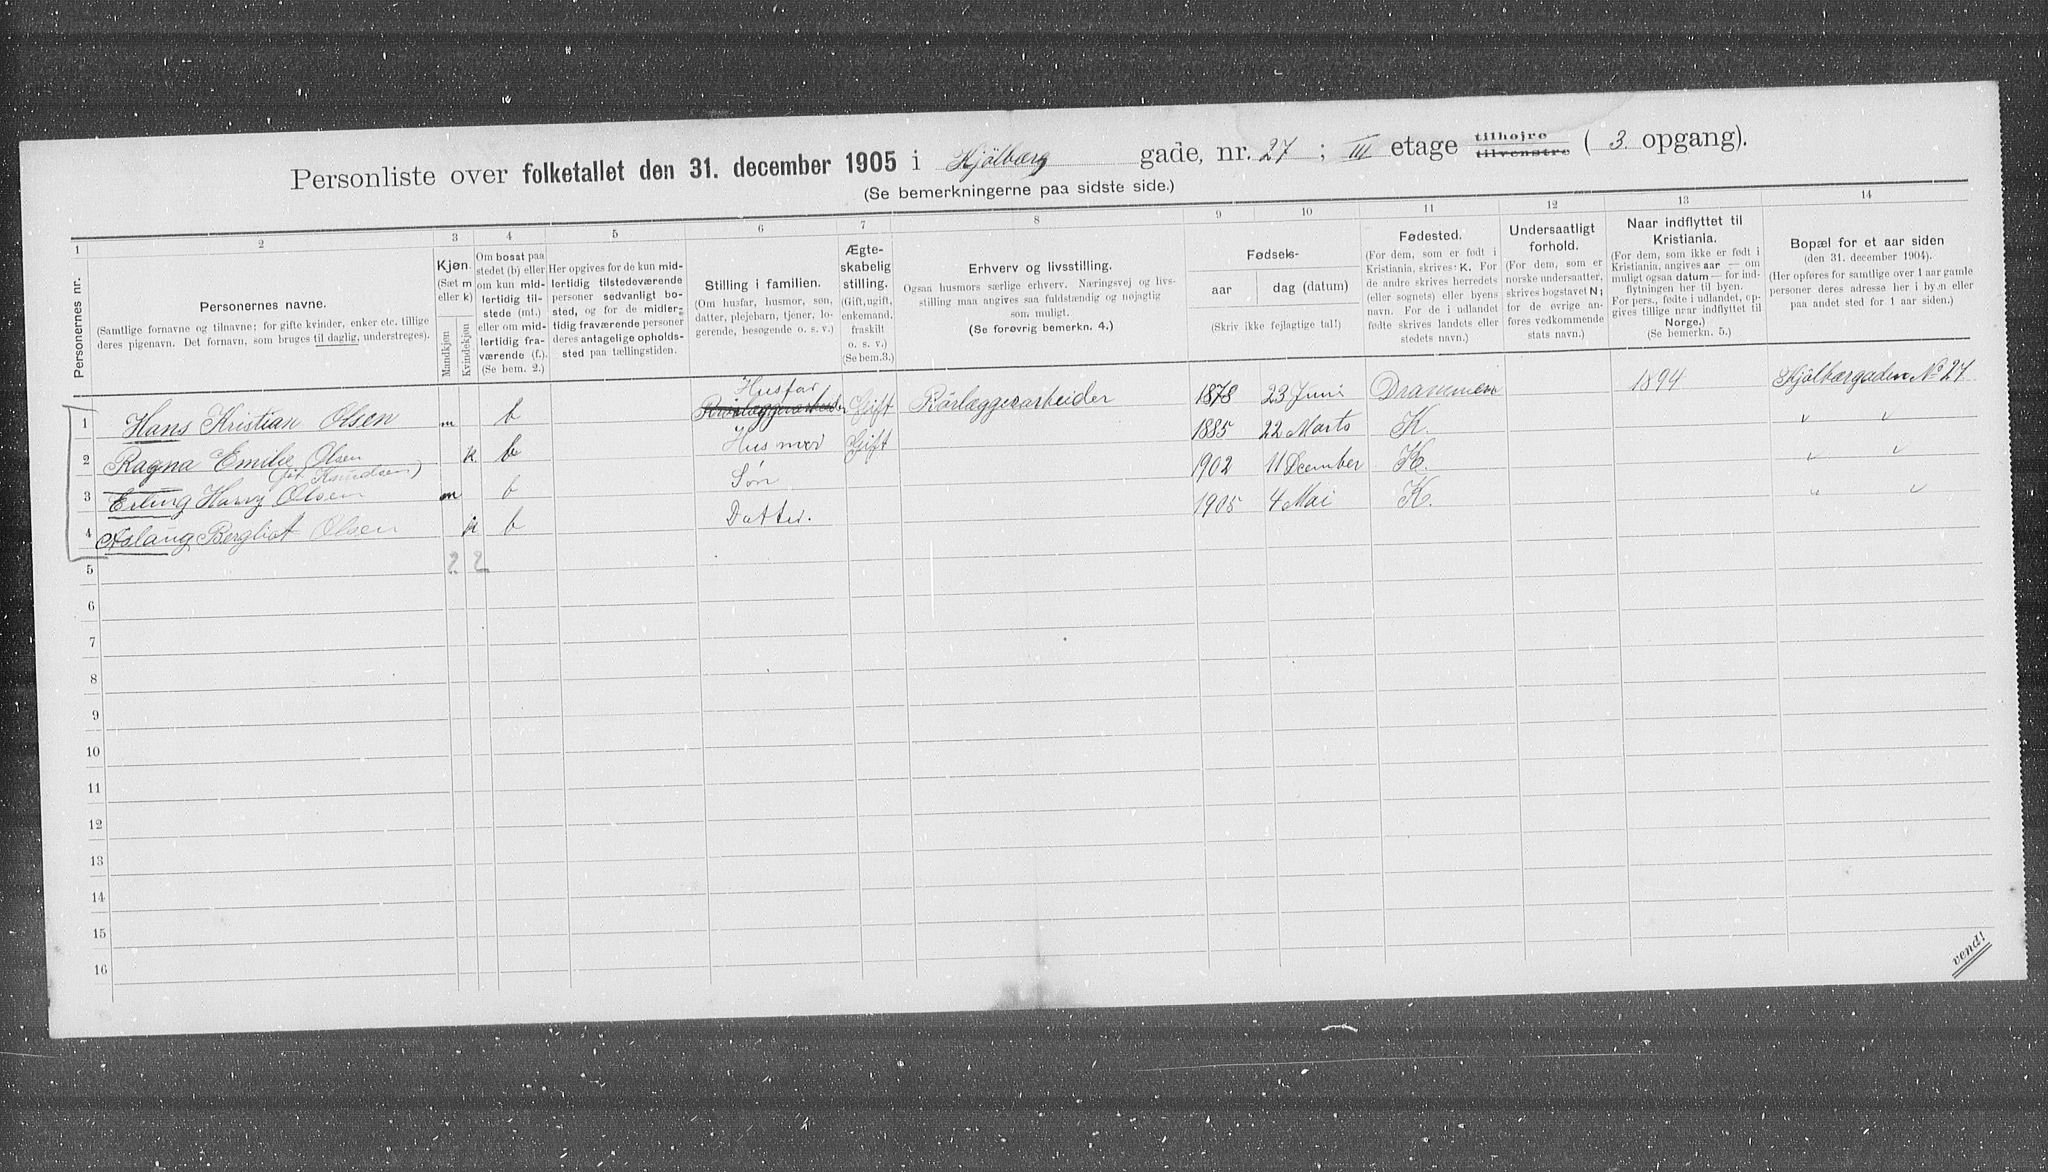 Personliste over folketallet den 31. december 1905 i Kjølbærg gade, nr. 27; III etage tilhøjre tilvenstre ( 3. opgang).
(Se bemerkningerne paa sidste side.)
1 2 3 4 5 6 7 8 9 10 11 12 13 14
Personernes nr.
Personernes navne.
(Samtlige fornavne og tilnavne; for gifte kvinder, enker etc. tillige
deres pigenavn. Det fornavn, som bruges til daglig, understreges).
Kjøn.
(Sæt m
eller k)
Mandkjøn
Kvindekjøn
Om bosat paa
stedet (b) eller
om kun mid-
lertidig til-
stede (mt.)
eller om mid-
lertidig fra-
værende (f.).
(Se bem. 2.)
Her opgives for de kun mid-
lertidig tilstedeværende
personer sedvanligt bo-
sted, og for de midler-
tidig fraværende personer
deres antagelige opholds-
sted paa tællingstiden.
Stilling i familien.
(Om husfar, husmor, søn,
datter, plejebarn, tjener, lo-
gerende, besøgende o. s. v.)
Ægte-
skabelig
stilling.
(Gift, ugift,
enkemand,
fraskilt
o. s. v.)
(Se bem.3.)
Erhverv og livsstilling.
Ogsaa husmors særlige erhverv. Næringsvej og livs-
stilling maa angives saa fuldstændig og nøjagtig
som muligt.
(Se forøvrig bemerkn. 4.)
Fødsels-
aar
dag (datum)
(Skriv ikke fejlagtige tal!)
Fødested.
(For dem, som er født i
Kristiania, skrives: K. For
de andre skrives herredets
(eller sognets) eller byens
navn. For de i udlandet
fødte skrives landets eller
stedets navn.)
Undersaatligt
forhold.
(For dem, som er
norske undersaatter,
skrives bogstavet N;
for de øvrige an-
føres vedkommende
stats navn.)
Naar indflyttet til
Kristiania.
(For dem, som ikke er født i
Kristiania, angives aar — om
muligt ogsaa datum — for ind-
flytningen her til byen.
For pers., fødte i udlandet, op-
gives tillige naar indflyttet til
Norge.)
(Se bemerkn. 5.)
Bopæl for et aar siden
(den 31. december 1904).
(Her opføres for samtlige over 1 aar gamle
personer deres adresse her i byen eller
paa andet sted for 1 aar siden.)
1 Hans Kristian Olsen m b Husfar Rörlæggerarbeider Gift Rörlæggerarbeider 1878 23 Juni Drammen 1894 Kjølbærgaden No 27
2 Ragna Emilie Olsen k b Husmor Gift 1885 22 Marts K. " "
(föt Knudsen)
3 Erling Harry Olsen m b Søn 1902 11 December K. " "
4 Aslaug Bergliot Olsen k b Datter. 1905 4 Mai K. " "
5 2 2
6
7
8
9
10
11
12
13
14
15
16
vend!